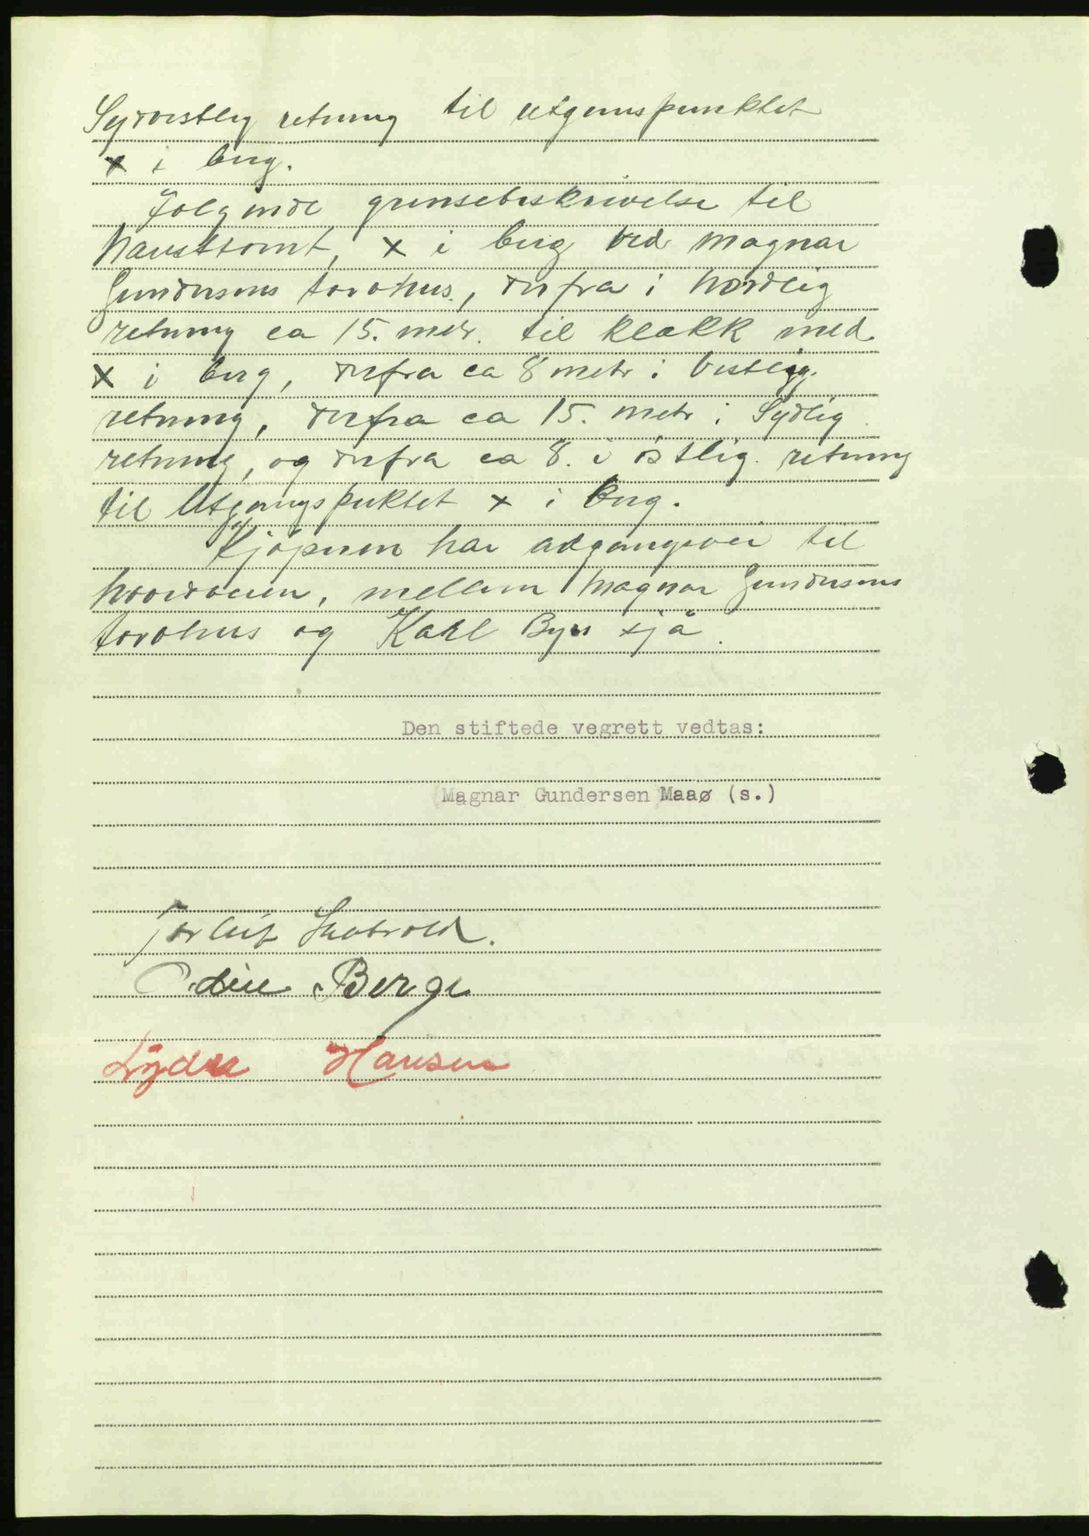 Sydvestlig retning til utgangspunktet
x i berg.
Følgende grensebeskrivelse til
Nausttomt, x i berg ved Magnar
Gundersens torvhus, derfra i Nordlig
retning ca 15. metr. til klakk med
x i berg, derfra ca 8 metr i Vestlig
retning, derfra ca 15. metr i Sydlig
retning, og derfra ca 8. i østlig retning
til Utgangspuktet x i berg.
Kjøperen har adgangsvei til
mellem Magnar Gundersens
torvhus og Karl Byes sjå.
Den stiftede vegrett vedtas:
(Magnar Gundersen Maaø (s.)
Torleif
Odin Berge
Lydia Hansen